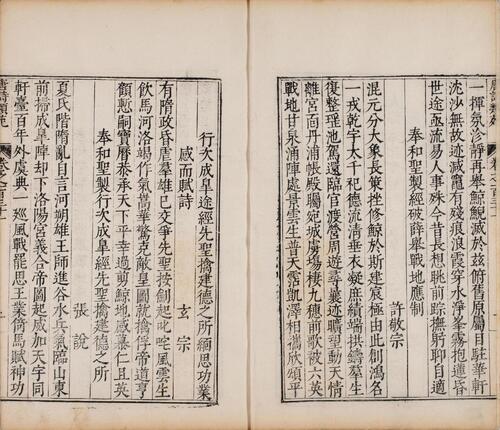 唐詩類苑
一揮氛沴靜再舉鯨鯢滅於茲俯舊原屬目駐華軒
沈沙無故迹滅竈有殘痕浪霞穿水淨峯霧抱蓮昏
世途亟流易人事殊今昔長想眺前蹤撫躬聊自適
奉和聖製經破薛舉戰地應制
許敬宗
混元分大象長策挫修鯨於斯建宸極由此創鴻名
一戎乾宇太千祀德流清垂衣凝庶績端拱鑄羣生
復整瑶池駕還臨官渡營周遊尋曩迹曠望動天情
離宮面丹浦帳殿矚宛城虜場棲九穗前歌被六英
戰地甘泉涌陣處景雲生普天霑凱澤相攜欣頌平
行次成皐途經先聖擒建德之所緬思功業
感而賦詩
玄宗
有隋政昏虐羣雄已交爭先聖按劒起叱咤風雲生
飲馬河洛竭作氣嵩華驚克敵皇圖就擒俘帝道亨
顧慙嗣寶曆恭承天下平幸過剪鯨地感慕仁且英
奉和聖製行次成皐經先聖擒建德之所
張說
夏氏階隋亂自言河朔雄王師進谷水兵氣臨山東
前掃成皐陣却下洛陽宮義合帝圖起威加天宇同
軒臺百年外虞典一廵風戰罷思王業倚馬賦神功
唐詩類苑